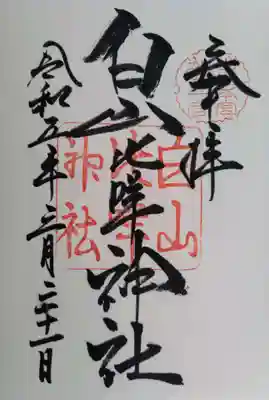 奉拝
白山比咩神社
令和五年三月二十一日
白山
神社